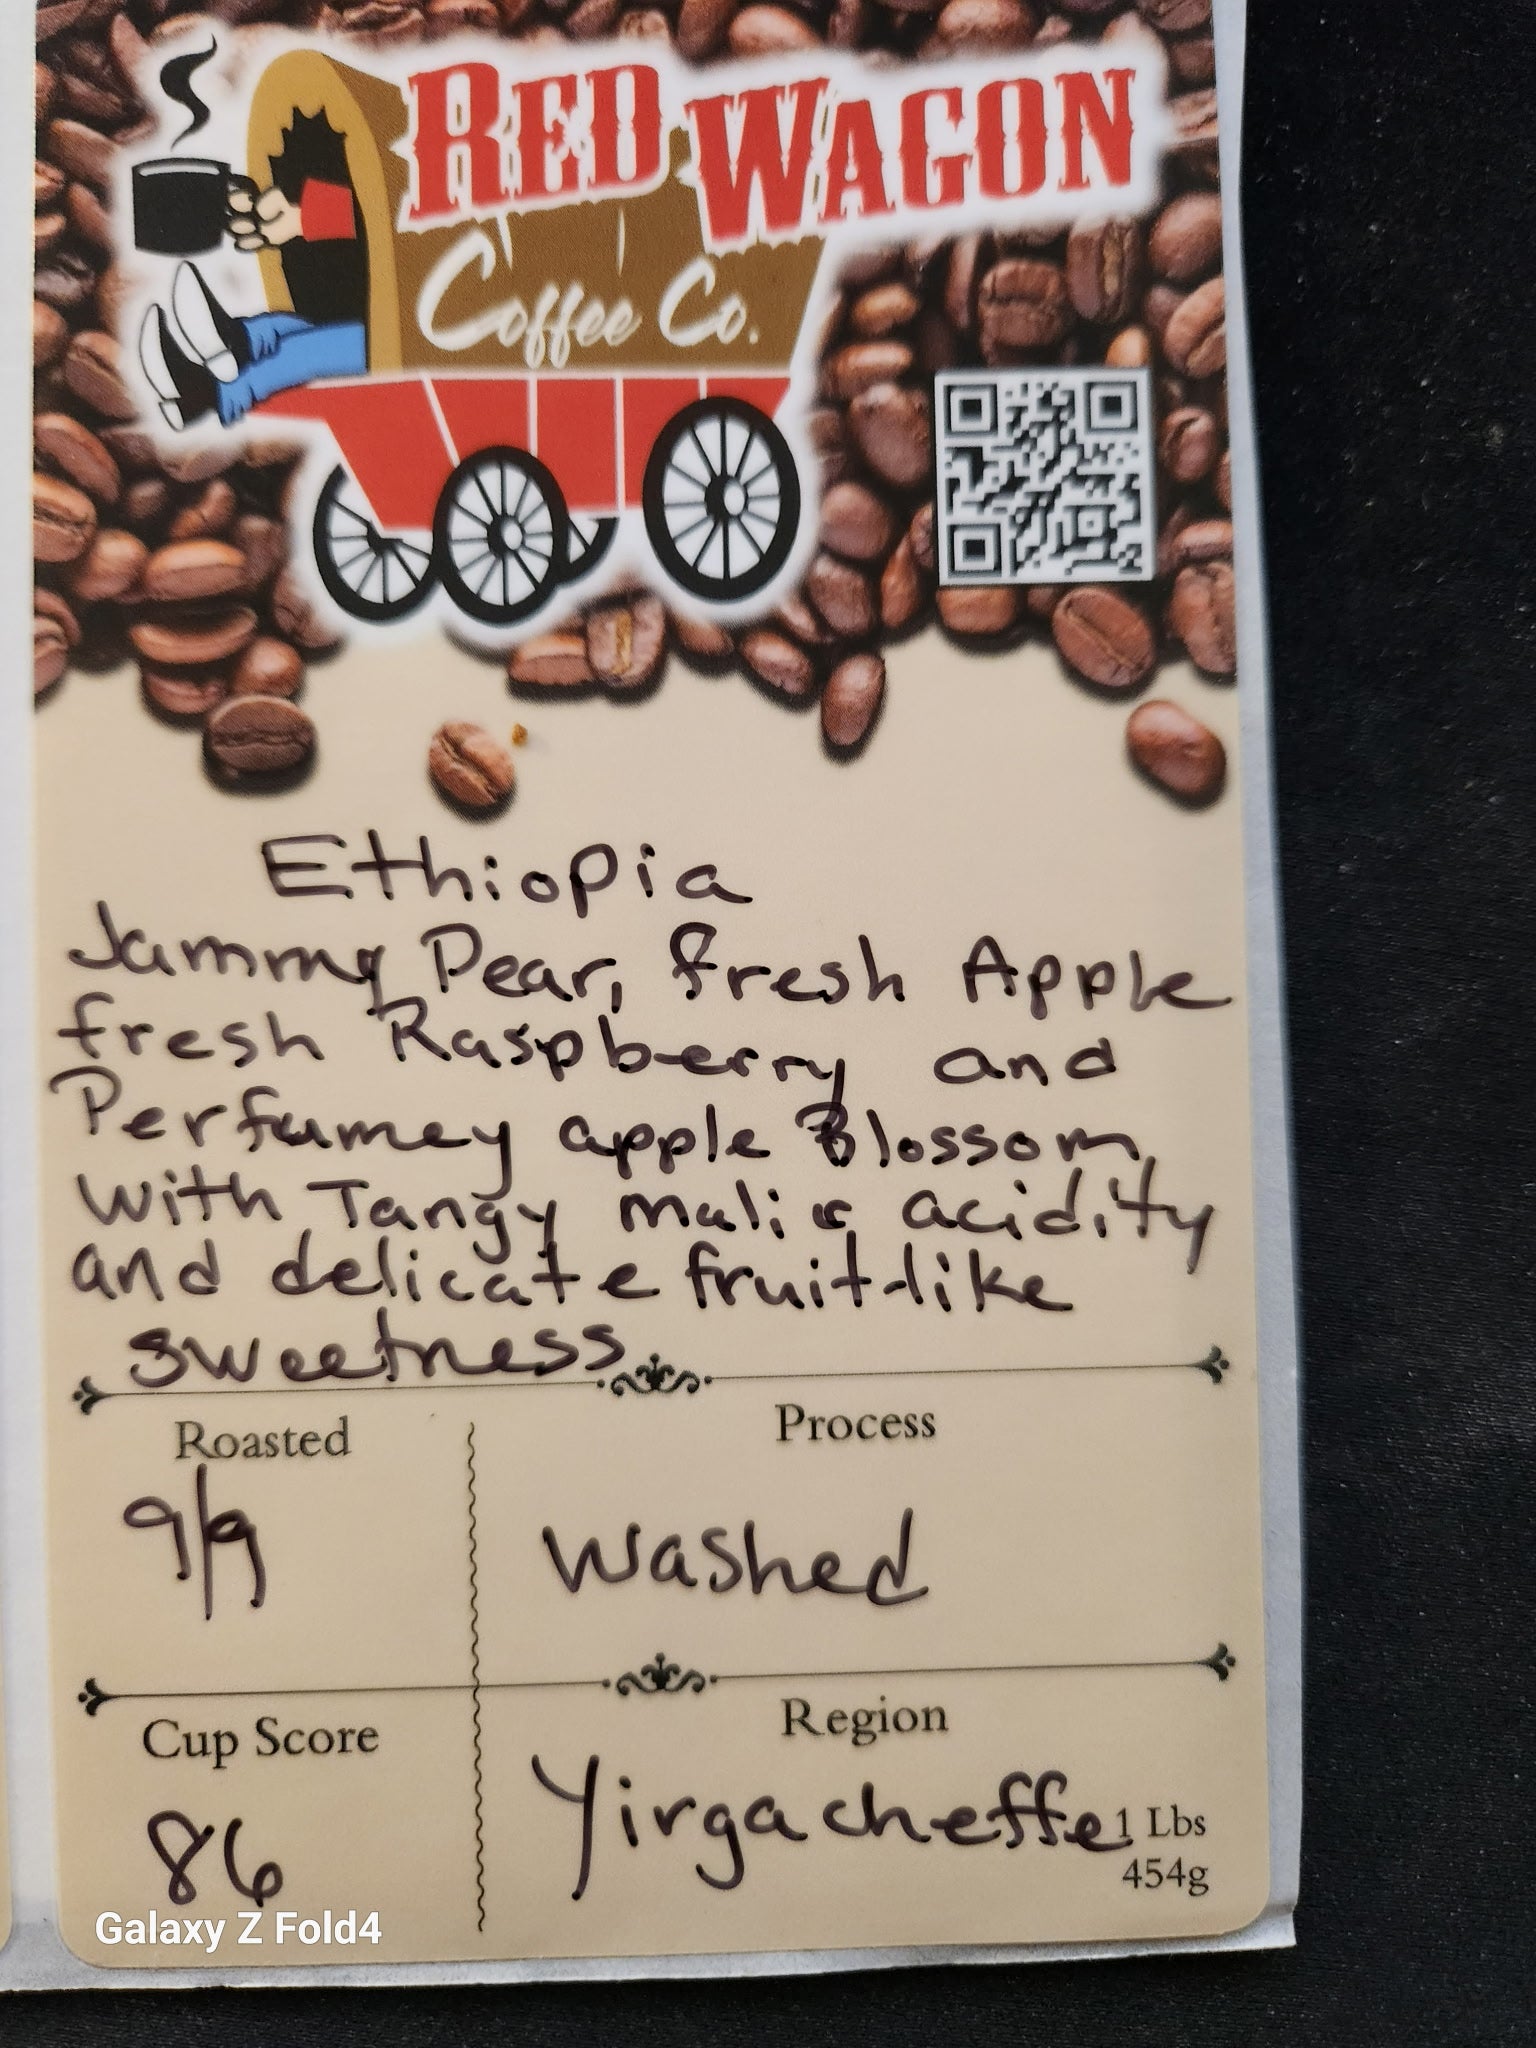 RED WAGON
Coffee Co.
Ethiopia
Jammy Pear, fresh Apple
fresh Raspberry and
Perfumey apple Blossom
with Tangy malic acidity
and delicate fruit-like
sweetness
Roasted
Process
9/9
washed
Cup Score
Region
86
Yirgacheffe
1 Lbs
454g
Galaxy Z Fold4